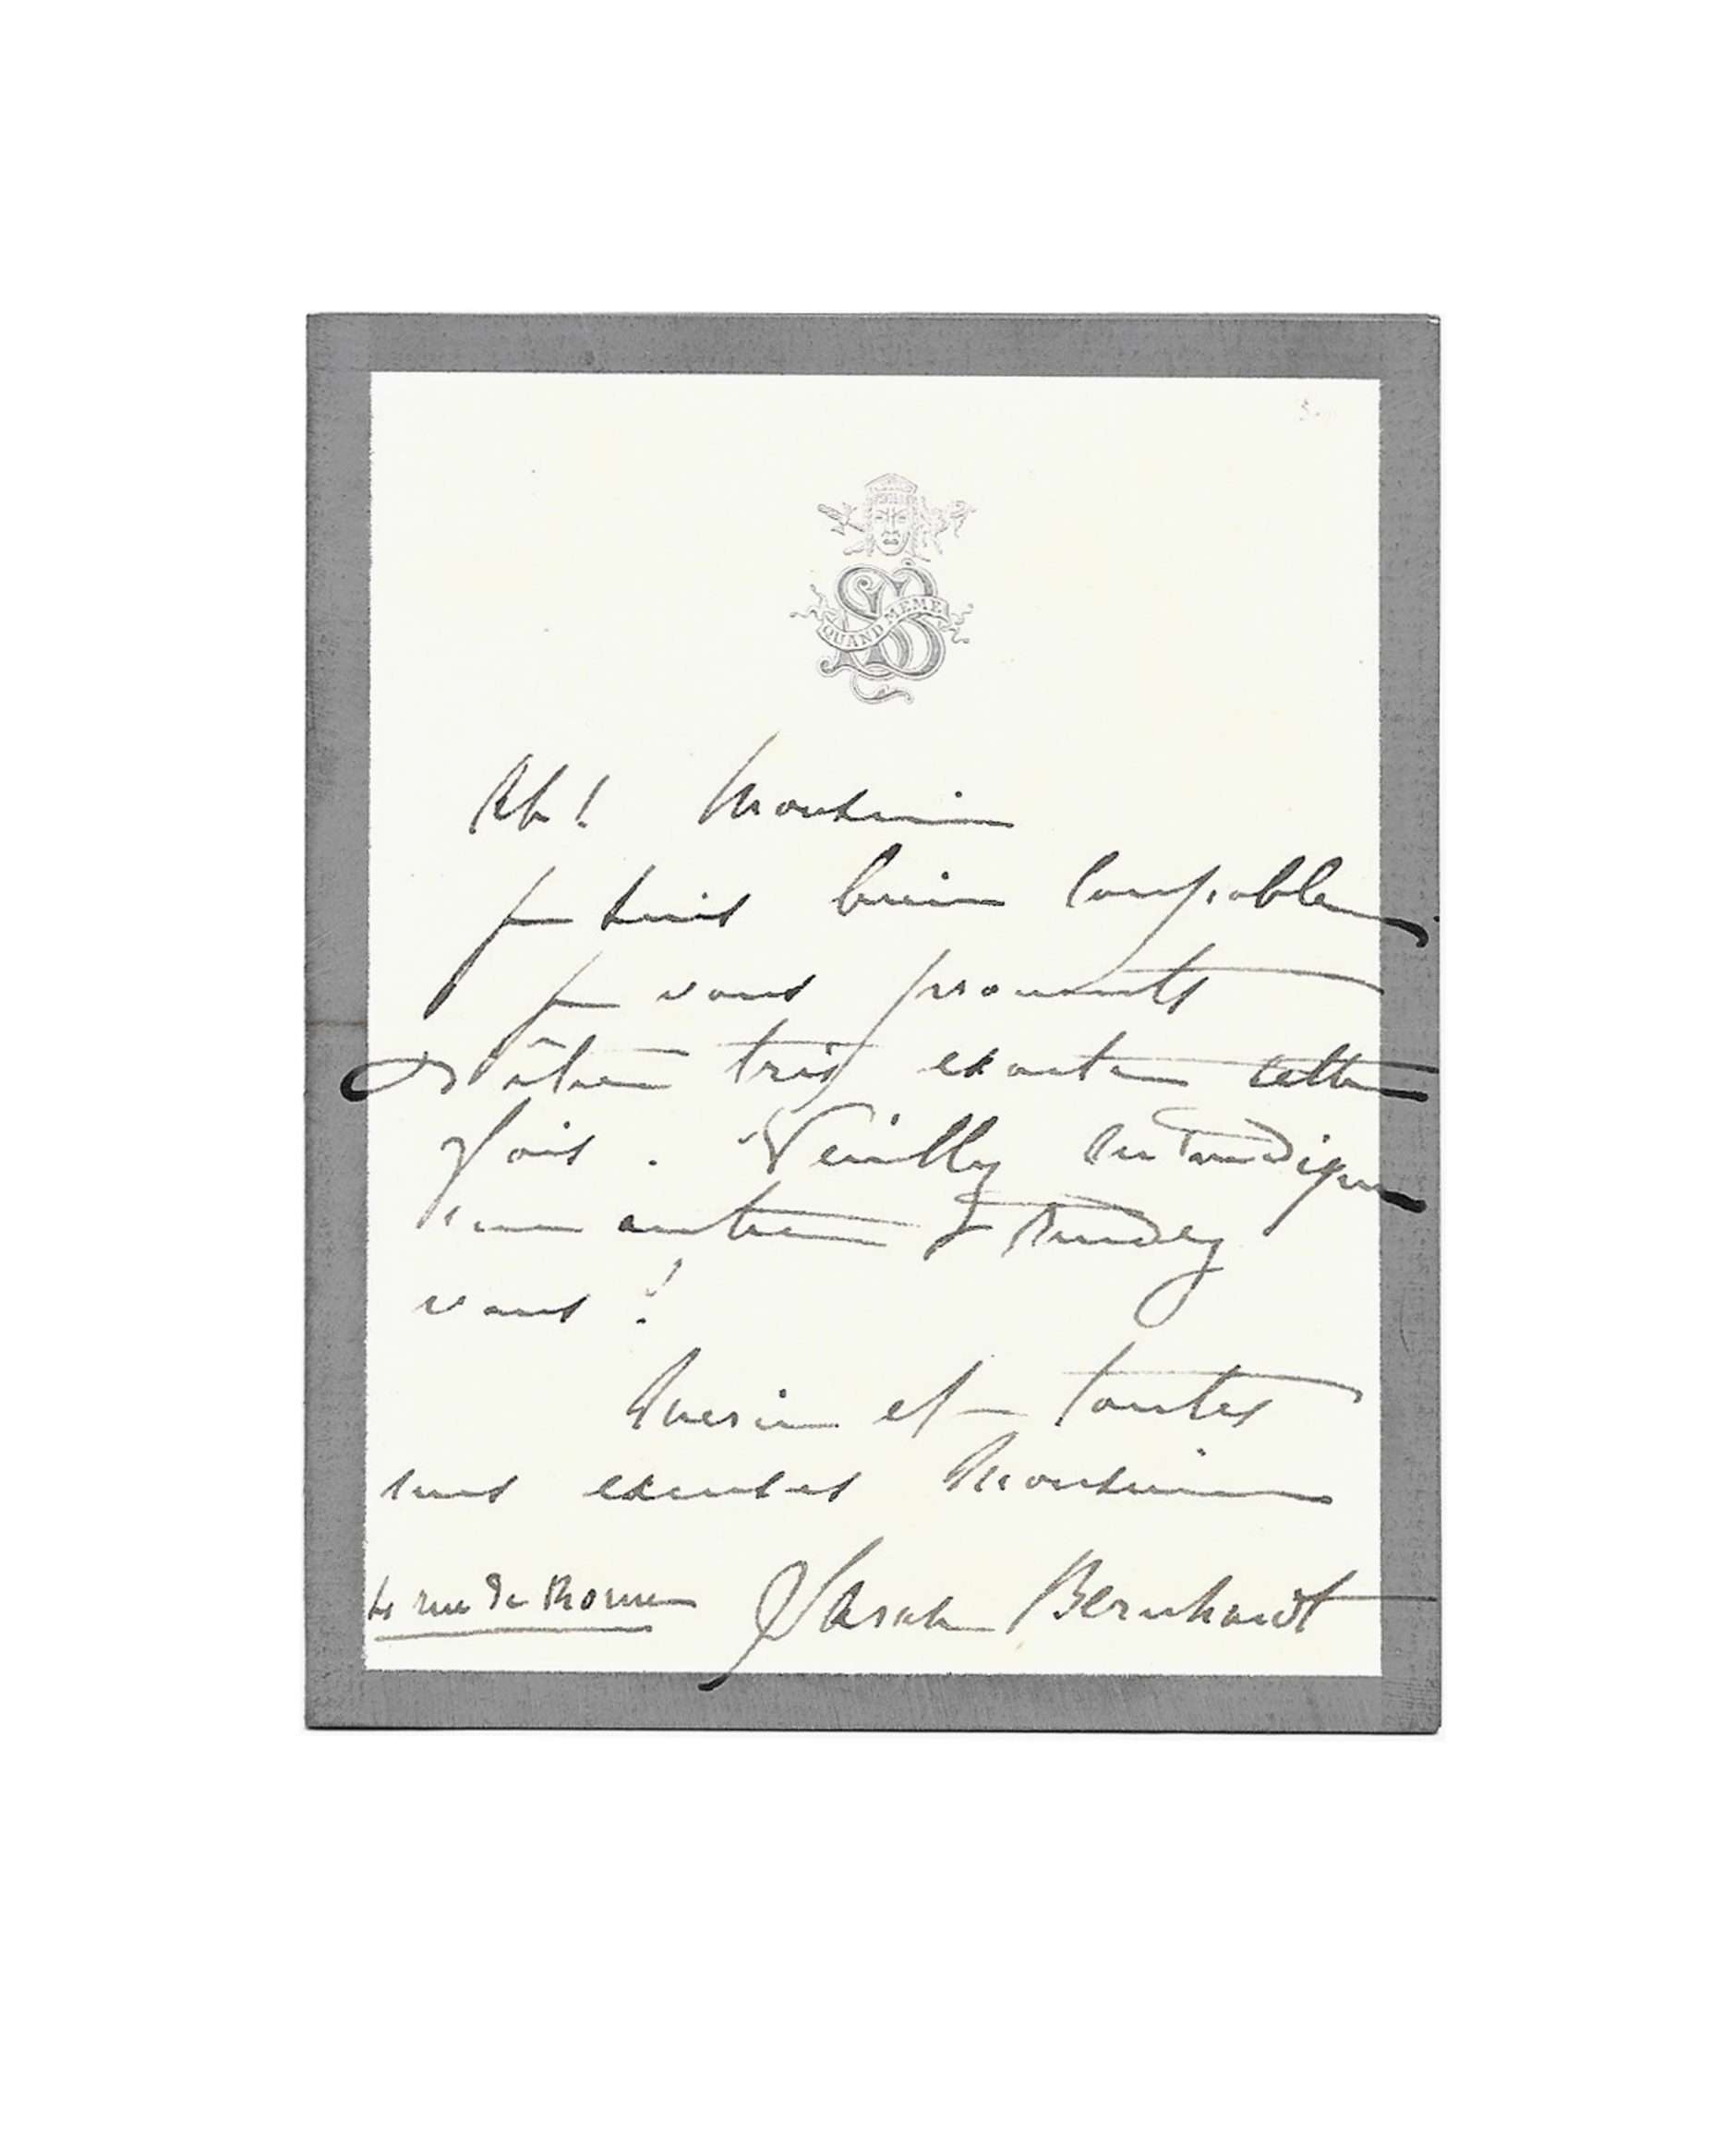 SB
QUAND MEME
Ah! Monsieur
je suis bien coupable
je vous promets
d'être très exacte cette
fois. Veuillez m'indiquer
un autre rendez
vous!
Merci et toutes
mes excuses Monsieur
rue de Rome Sarah Bernhardt